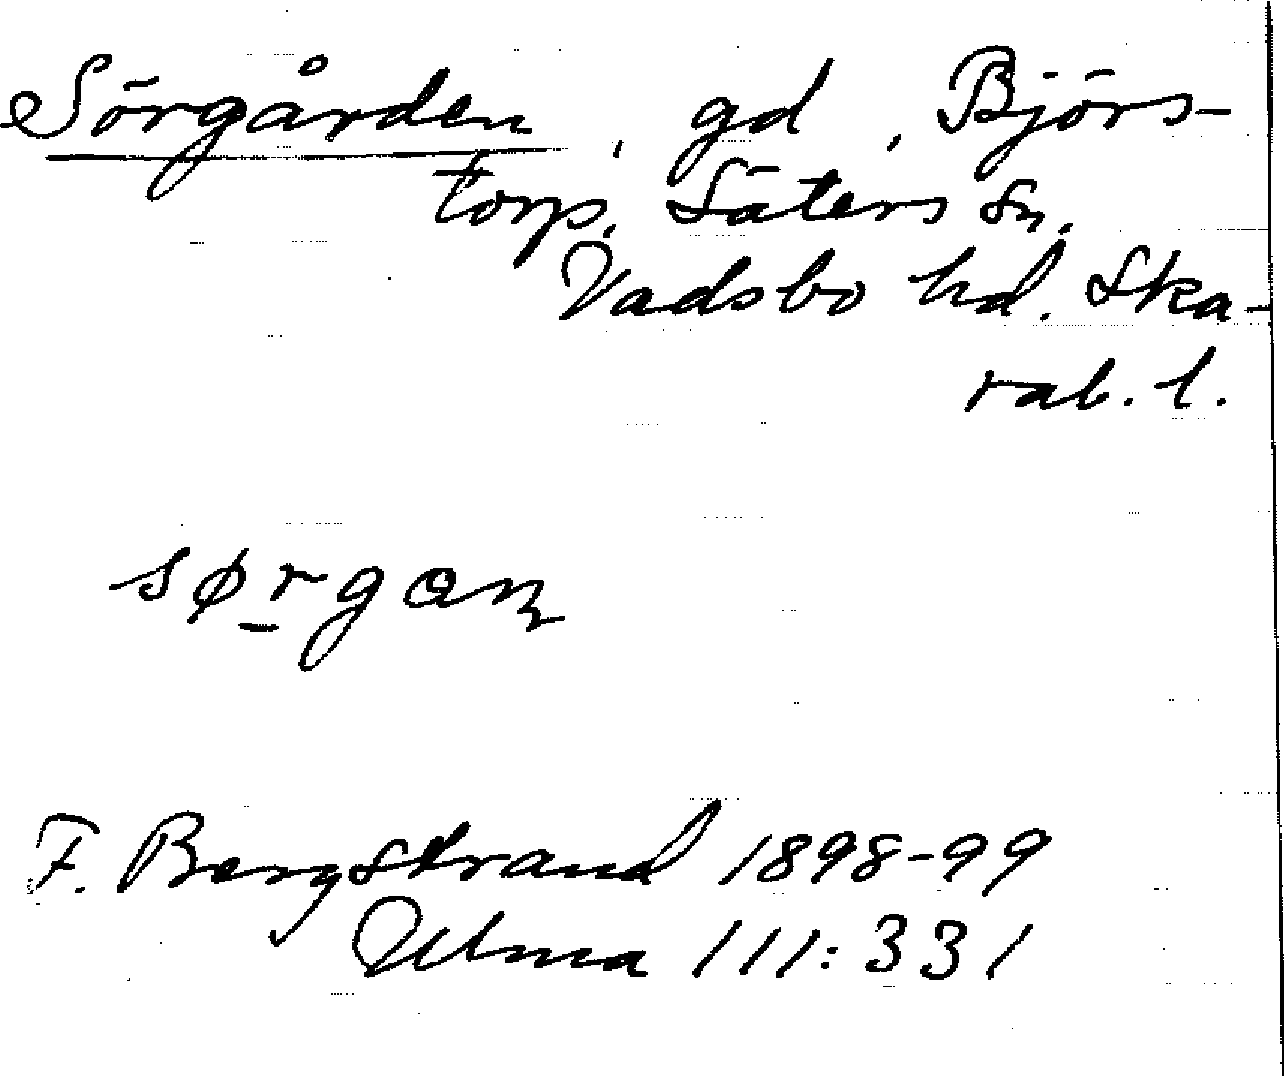 Sörgården, gd, Björs-
torp, Säters sn,
Vadsbo hd. Ska-
rab. l.
sørgaɳ
F. Bergstrand 1898-99
Ulma 111:331